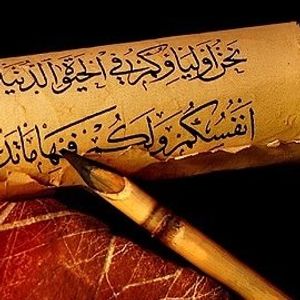 نحن أولياؤكم في الحيوة الدنيا
أنفسكم ولكم فيها ما تد